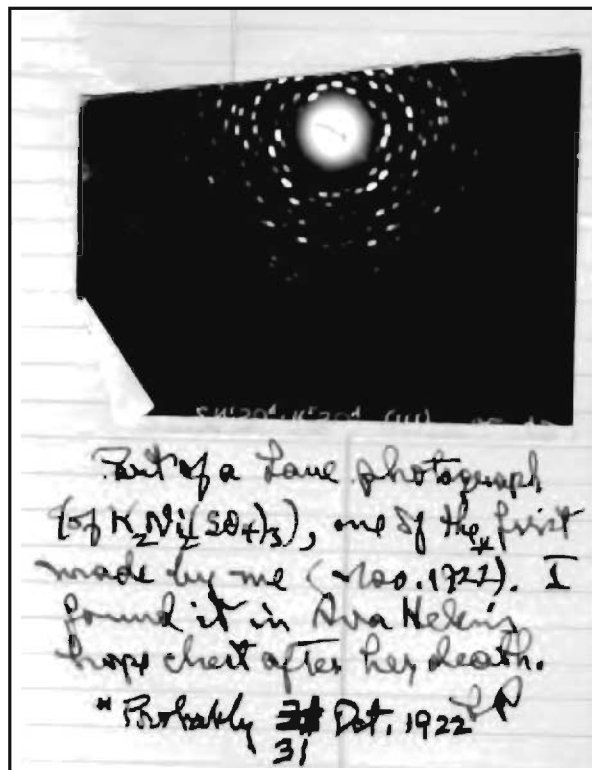 (111)
Part of a Laue photograph
(of K₂Ni₂(SO₄)₃), one of the* first
made by me (Nov. 1922). I
found it in Ava Helen's
hope chest after her death.
* Probably 31 Oct. 1922 LP